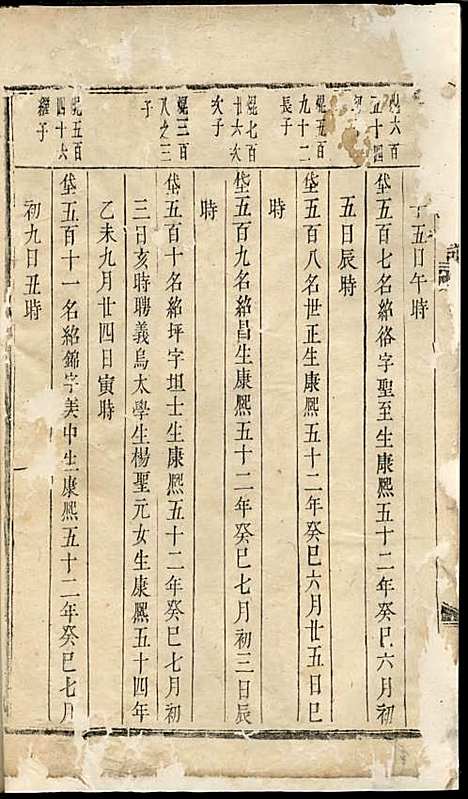 十五日午時
岱五百七名紹洛字聖至生康熙五十二年癸巳六月初
五日辰時
岱五百八名世正生康熙五十二年癸巳六月廿五日巳
時
岱五百九名紹昌生康熙五十二年癸巳七月初三日辰
時
岱五百十名紹坪字坦士生康熙五十二年癸巳七月初
三日亥時聘義烏太學生楊聖元女生康熙五十四年
乙未九月廿四日寅時
岱五百十一名紹錦字美中生康熙五十二年癸巳七月
初九日丑時
六百
五十四
焜五百
九十二
長子
焜七百
廿六次
次子
焜三百
八之三
子
焜五百
四十六
繼子